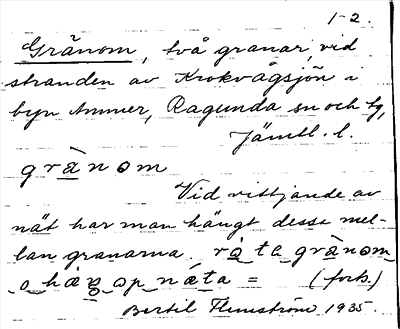 1-2.
Gränom, två granar, vid
stranden av Krokvågsjön i
byn Ammer, Ragunda sn och tg,
Jämtl. l.
grànom
Vid vittjande av
nät har man hängt desse mel-
lan granarna. ta grànom
o nǽta = (forts.)
Bertil Flemström 1935.